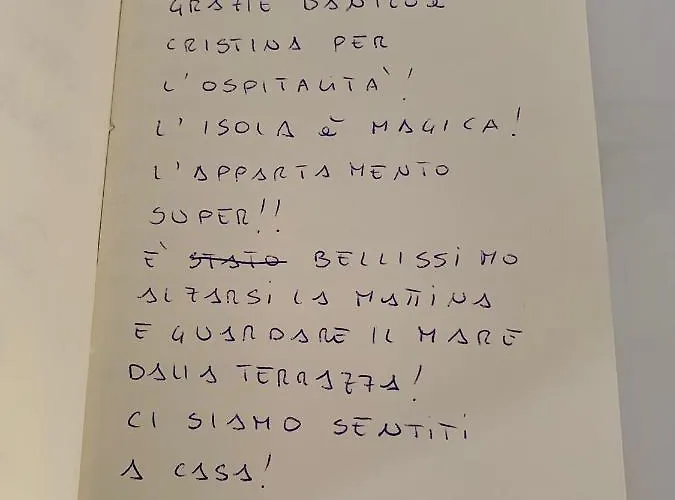 GRAZIE DANILO E
CRISTINA PER
L'OSPITALITÀ!
L'ISOLA è MAGICA!
L'APPARTAMENTO
SUPER!!
E' STATO BELLISSIMO
ALZARSI LA MATTINA
E GUARDARE IL MARE
DALLA TERRAZZA!
CI SIAMO SENTITI
A CASA!